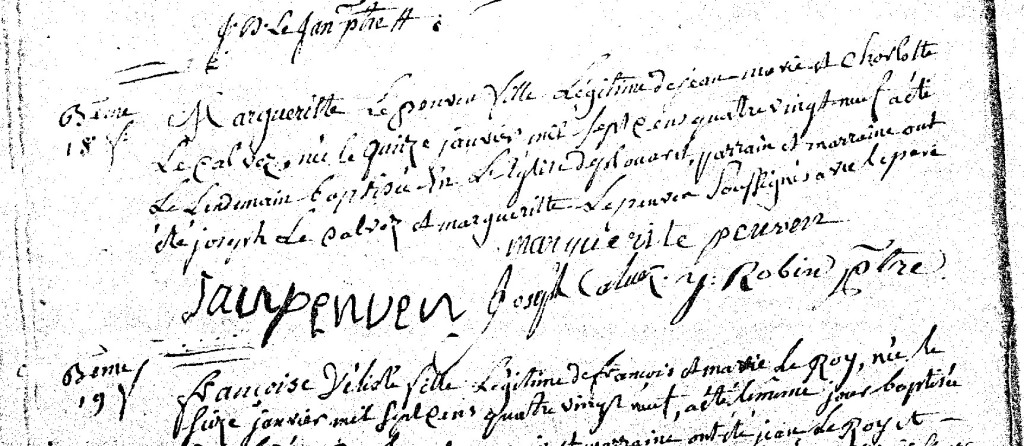 J. B. Le Jan ptre
Bême Margueritte Le penven fille Légitime de jean marie et Charlotte
18 Le Calvez, née le quinze janvier mil Sept Cens quatre vingt neuf a été
Le Lendemain baptisée En L'Eglise de plouaret, parrain et marraine ont
été joseph Le Calvez et margueritte Le penven Soussignés avec le pere
marguerite penven
Janpenven Joseph Calvez y. Robin ptre
Bême françoise fille Légitime de françois et marie Le Roy, née le
19 Seize janvier mil Sept Cens quatre vingt neuf, a été le même jour baptisée
et marraine ont été jean Le Roy et